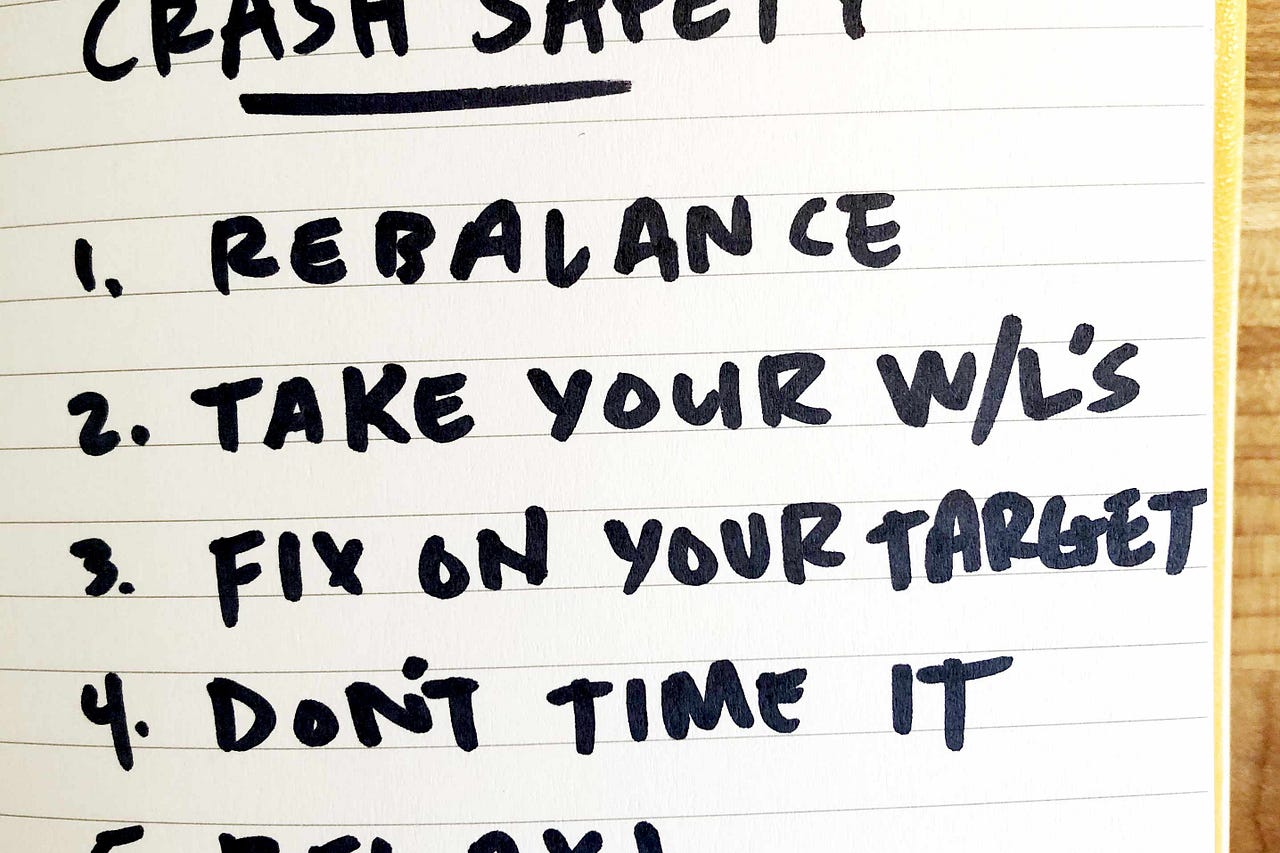 CRASH SAFETY
1. REBALANCE
2. TAKE YOUR W/L'S
3. FIX ON YOUR TARGET
4. DON'T TIME IT
5. RELAX!